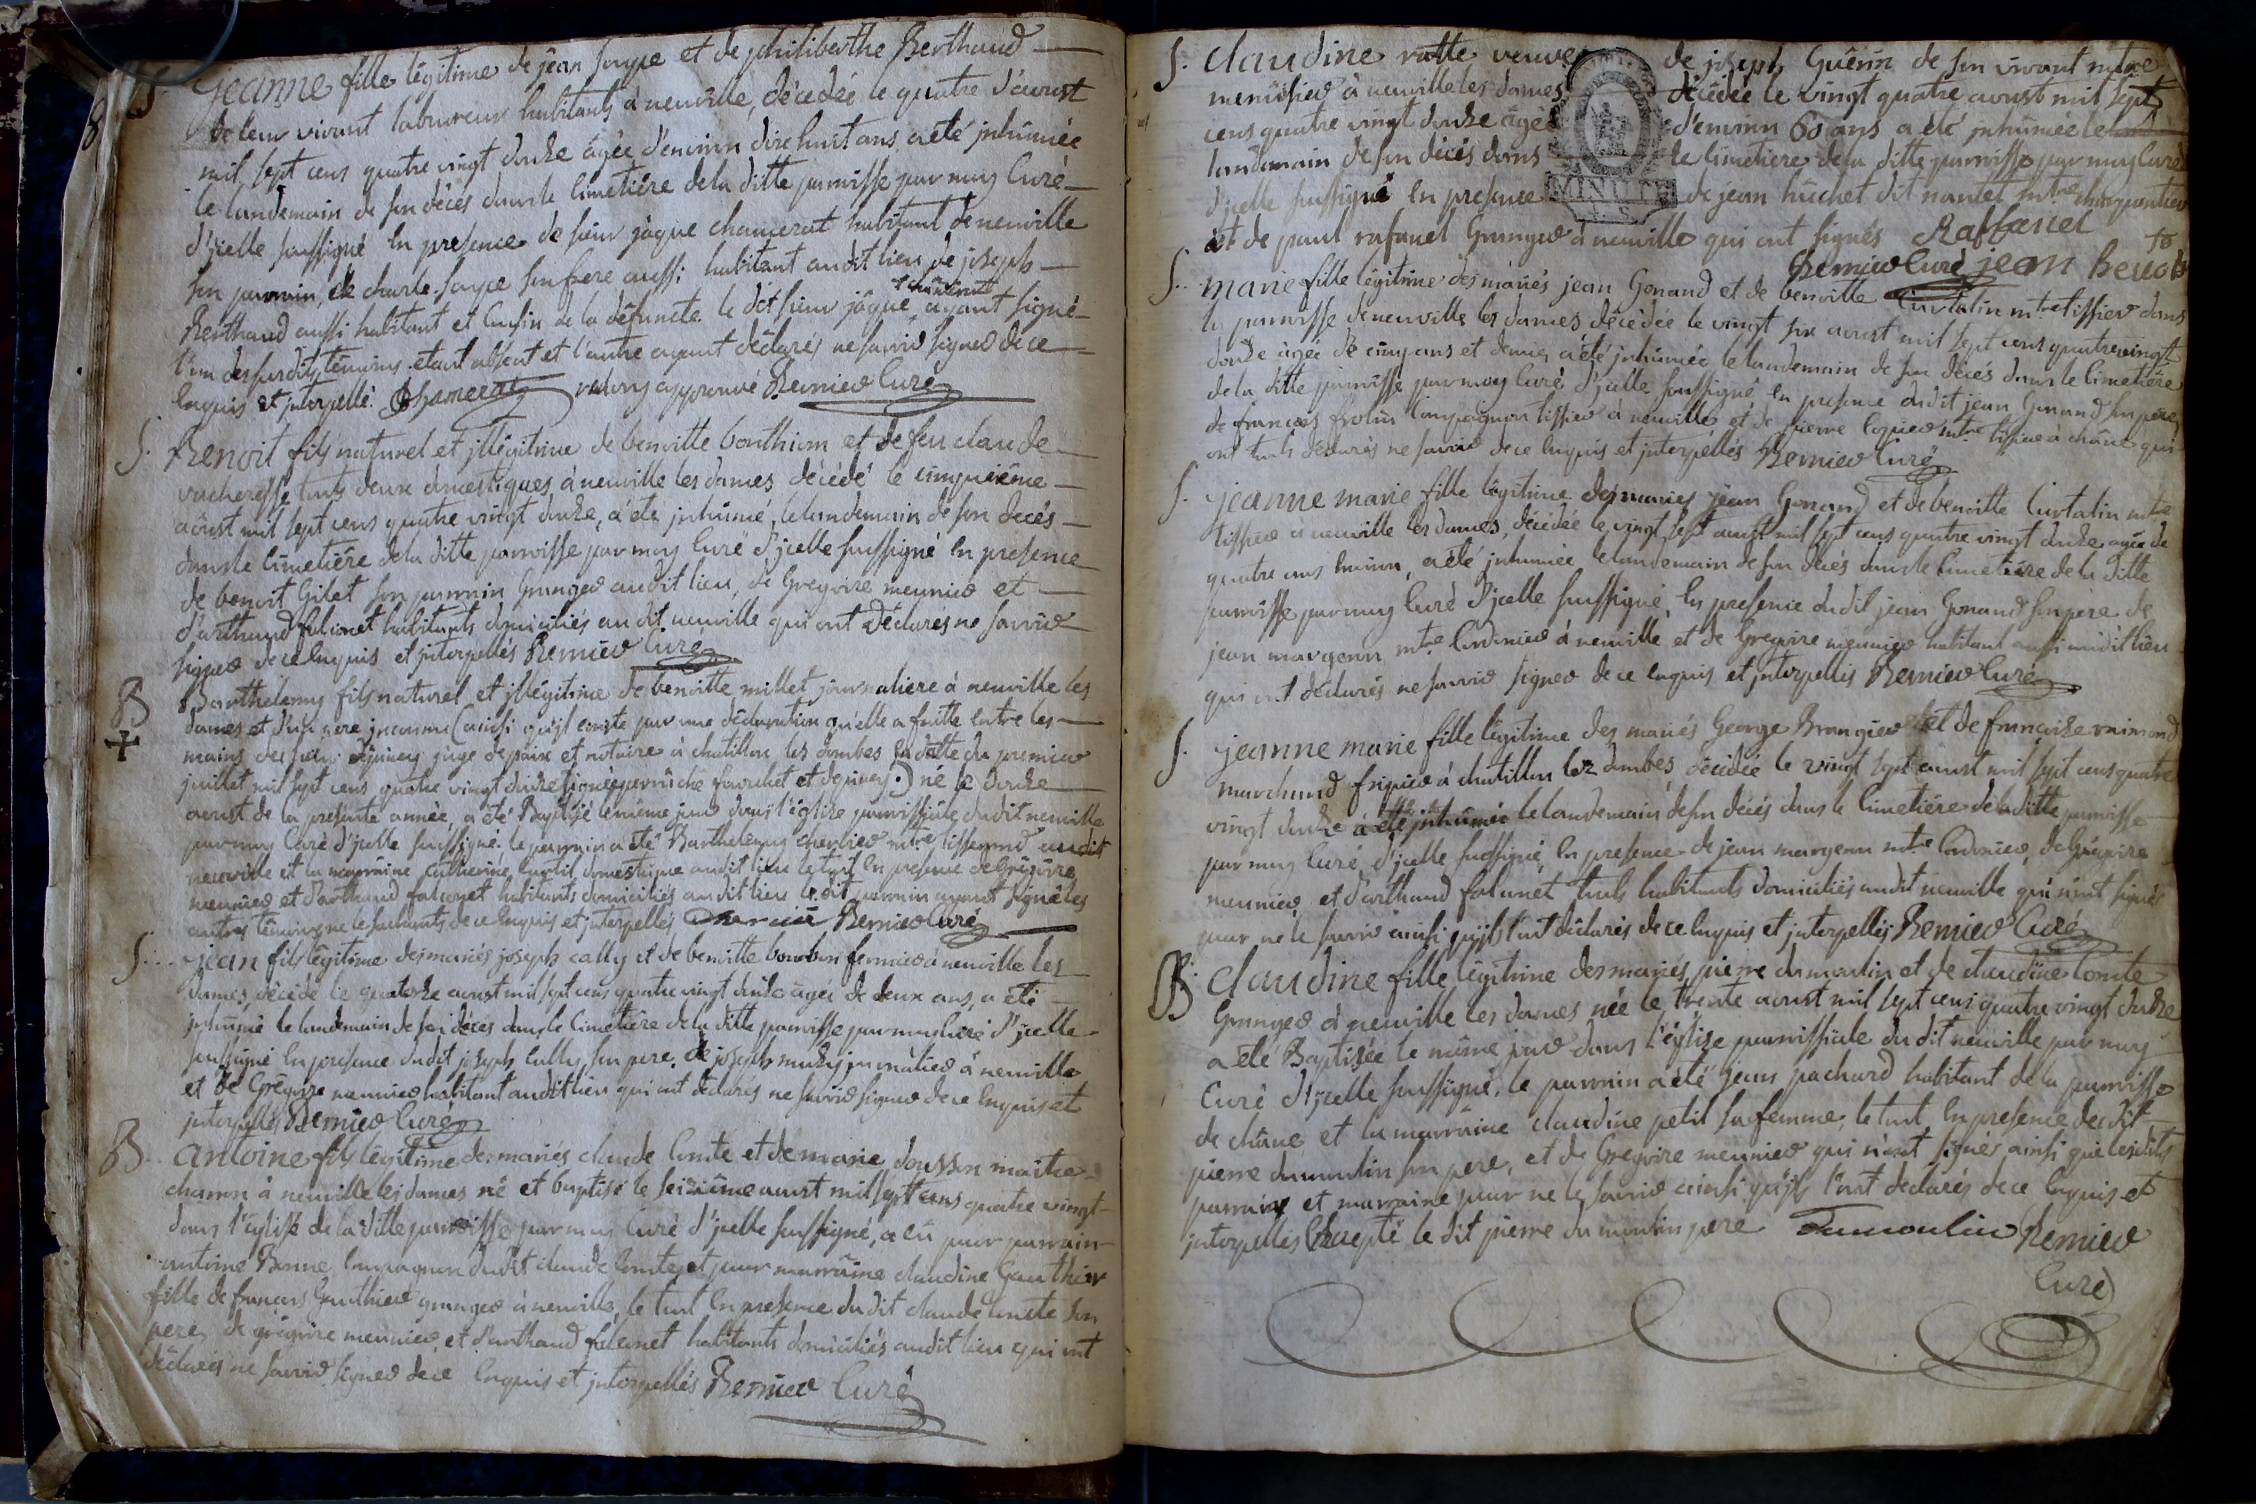 S. jeanne fille légitime de jêan soupe et de philiberthe Berthaud
de leur vivant laboureur habitants à neuville, décédée le quatre d'aoust
mil sept cens quatre vingt douze âgée d'environ dix huit ans a été inhumée
le landemain de son décés dans le cimetiére de la ditte paroisse par moy Curé
d'jcelle soussigné En presence de sieur jâque chamerat habitant de neuville
son parrain, de charle soupe son frere aussi habitant audit lieu de joseph
Berthaud aussi habitant et Cousin de la défuncte. le dit sieur jâque chamerat ayant signé
l'un des susdits témoins etant absent et l'autre ayant déclarés ne savoir signer de ce
Enquis et jnterpellé. Chamerat renvoy approuvé Bernier Curé
S. Benoit fils naturel et jllégitime de benoitte bonthion et de feu claude
vacheresse touts deux domestiques à neuville les dames décédé le cinquiéme
aôust mil sept cens quatre vingt douze, a été jnhumé, le landemain de son decés
dans le cimetiére de la ditte paroisse par moy Curé d'jcelle soussigné En presence
de benoit Gilet son parrain Granger audit lieu, de Gregoire meunier et
d'arthaud falconet habitants domiciliés audit neuville qui ont déclarés ne savoir
signer de ce Enquis et jnterpellés Bernier Curé
B Barthelemy fils naturel et jllégitime de benoitte millet journaliere à neuville les
dames et d'un pere jnconnu (ainsi qu'il conste par une déclaration qu'elle a faitte entre les
mains du sieur juge de paix et notaire à chatillon les dombes En datte du premier
juillet mil sept cens quatre vingt douze ) né le douze
aoust de la presente année, a été Baptisé le même jour dans l'église paroissiale dudit neuville
par moy Curé d'jcelle soussigné. le parrain a été Barthelemy mtre tisserand audit
neuville et la marraine Catherine domestique audit lieu le tout En presence de Grégoire
meunier et d'arthaud falconet habitants domiciliés audit lieu le dit parrain ayant signé les
autres témoins ne le sachants de ce Enquis et jnterpellés Bernier Curé
S. jean fils légitime des mariés joseph cally et de benoitte bourbon fermier à neuville les
dames, décédé le quatorze aoust mil sept cens quatre vingt douze âgé de deux ans, a été
jnhumé le landemain de son décés dans le Cimetiére de la ditte paroisse par moy Curé d'jcelle
soussigné En presence dudit joseph cally son pere, de joseph journalier à neuville
et de Grégoire meunier habitant audit lieu qui ont declarés ne savoir signer de ce Enquis et
jnterpellés Bernier Curé
B. antoine fils légitime des mariés claude Comte et de marie dousson maitre
charon à neuville les dames né et baptisé le seiziéme aoust mil sept cens quatre vingt
dans l'église de la ditte paroisse par moy Curé d'jcelle soussigné, a eû pour parrain
antoine Bonne Compagnon dudit claude Comte, et pour marraine claudine Gauthier
fille de françois Gauthier granger à neuville, le tout En presence dudit claude Comte son
pere, de grégoire meunier, et d'arthaud falconet habitants domiciliés audit lieu qui ont
déclarés ne savoir signer de ce Enquis et jnterpellés Bernier Curé
S. Claudine ratte veuve de joseph Guérin de son vivant mtre
menuisier à neuville les dames décédée le vingt quatre aoust mil sept
cens quatre vingt douze âgée d'environ 60 ans a été jnhumée le
landemain de son décés dans le cimetiere de la ditte paroisse par moy Curé
d'jcelle soussigné En presence de jean hûchet dit nantet mtre charpentier
et de paul rafanel Granger à neuville qui ont signés Raffanel
Bernier Curé jean
MINUTE
S. marie fille légitime des mariés jean Gonand et de benoitte Curtalin mtre tissier dans
la paroisse de neuville les dames décédée le vingt six aoust mil sept cens quatre vingt
douze âgée de cinq ans et demie, a été jnhumée le landemain de son décés dans le cimetiére
de la ditte paroisse par moy Curé d'jcelle soussigné, en presence dudit jean Gonand son pere,
de françois Compagnon tissier à neuville et de pierre mtre tissier à châne qui
ont touts déclarés ne savoir de ce Enquis et jnterpellés Bernier Curé
S. jeanne marie fille légitime des mariés jean Gonand et de benoitte Curtalin mtre
tissier à neuville les dames, décédée le vingt sept aoust mil sept cens quatre vingt douze agée de
quatre ans Environ, a été jnhumée le landemain de son décés dans le Cimetiére de la ditte
paroisse par moy Curé d'jcelle soussigné, En presence dudit jean Gonand son pere de
jean margeron mtre Cordonier à neuville et de Gregoire meunier habitant aussi audit lieu
qui ont déclarés ne savoir signer de ce enquis et jnterpellés Bernier Curé
S. jeanne marie fille légitime des mariés George Brangier et de françoise raimond
marchand fripier à chatillon lez dombes décédée le vingt sept aoust mil sept cens quatre
vingt douze a été jnhumée le landemain de son décés dans le Cimetiére de la ditte paroisse
par moy Curé d'jcelle soussigné, En presence de jean margeron mtre Cordonier, de Grégoire
meunier, et d'arthaud falconet touts habitants domiciliés audit neuville qui n'ont signés
pour ne le savoir ainsi qu'jls l'ont déclarés de ce Enquis et jnterpellés Bernier Curé
B. Claudine fille légitime des mariés pierre dumoulin et de claudine Comte
Granger à neuville les dames née le trente aoust mil sept cens quatre vingt douze
a été Baptisée le même jour dans l'église paroissiale du dit neuville par moy
Curé d'jcelle soussigné, le parrain a été jean pachard habitant de la paroisse
de châne et la marraine claudine petit sa femme, le tout En presence dudit
pierre dumoulin son pere, et de Gregoire meunier qui n'ont signés ainsi que lesdits
parrain et marraine pour ne le savoir ainsi qu'jls l'ont declarés de ce Enquis et
jnterpellés Excepté le dit pierre du moulin pere Dumoulin Bernier
Curé